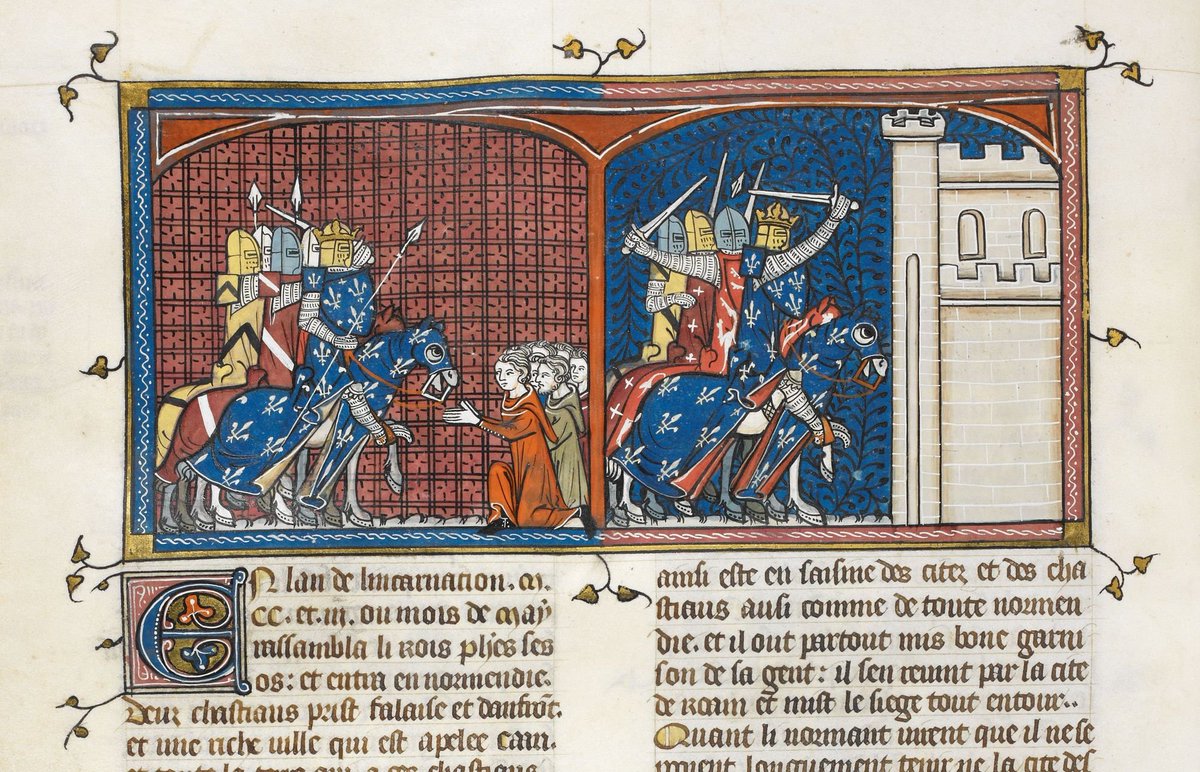 En lan de lincarnation. m.
CC. et. iii. ou mois de may
rassambla li rois phes ses
os: et entra en normendie.
Deux chastiaus prist falaise et danfront.
et une riche ville qui est apelee cam.
et toute la terre
chastiaus
ainsi este en saisine des citez et des cha
stiaus ausi comme de toute normen
die. et il out partout mis bone garni
son de sa gent: il sen reunt par la cite
de roan et mist le siege tout entour..
Quant li normant virent que il ne se
longuement tenir ne la cite des